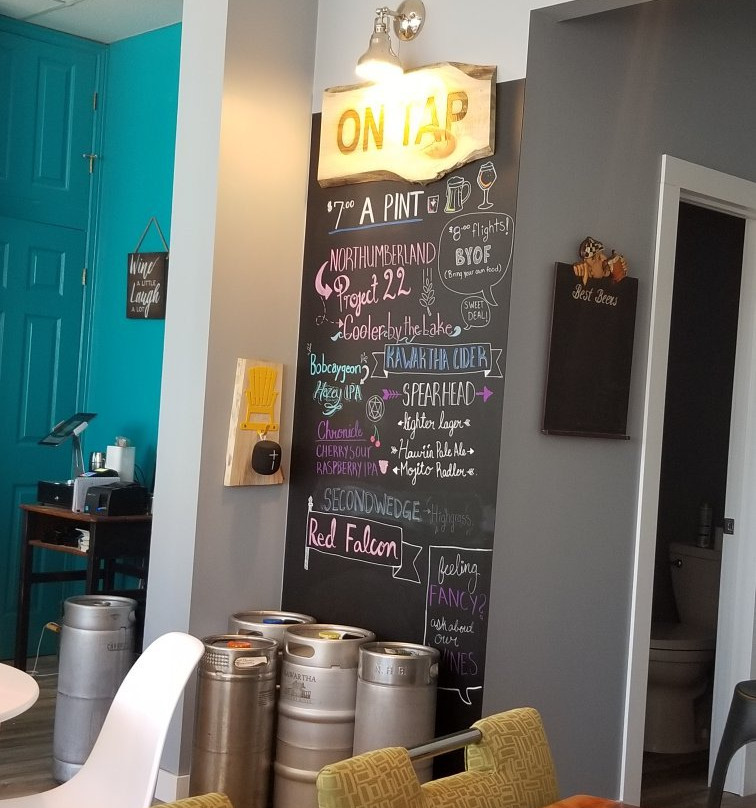 ON TAP
$7.00 A PINT
$8.00 flights!
BYOF
(Bring your own food)
SWEET
DEAL!
NORTHUMBERLAND
Project 22
Cooler by the Lake
KAWARTHA CIDER
Bobcaygeon
Hazey IPA
SPEARHEAD
lighter lager
Hawi'in Pale Ale
Mojito Radler
Chronicle
CHERRY SOUR
RASPBERRY IPA
SECONDWEDGE
Highgrass
Red Falcon
feeling
FANCY?
ask about
our
Wine
A LITTLE
Laugh
A LOT
Best Beers
KAWARTHA